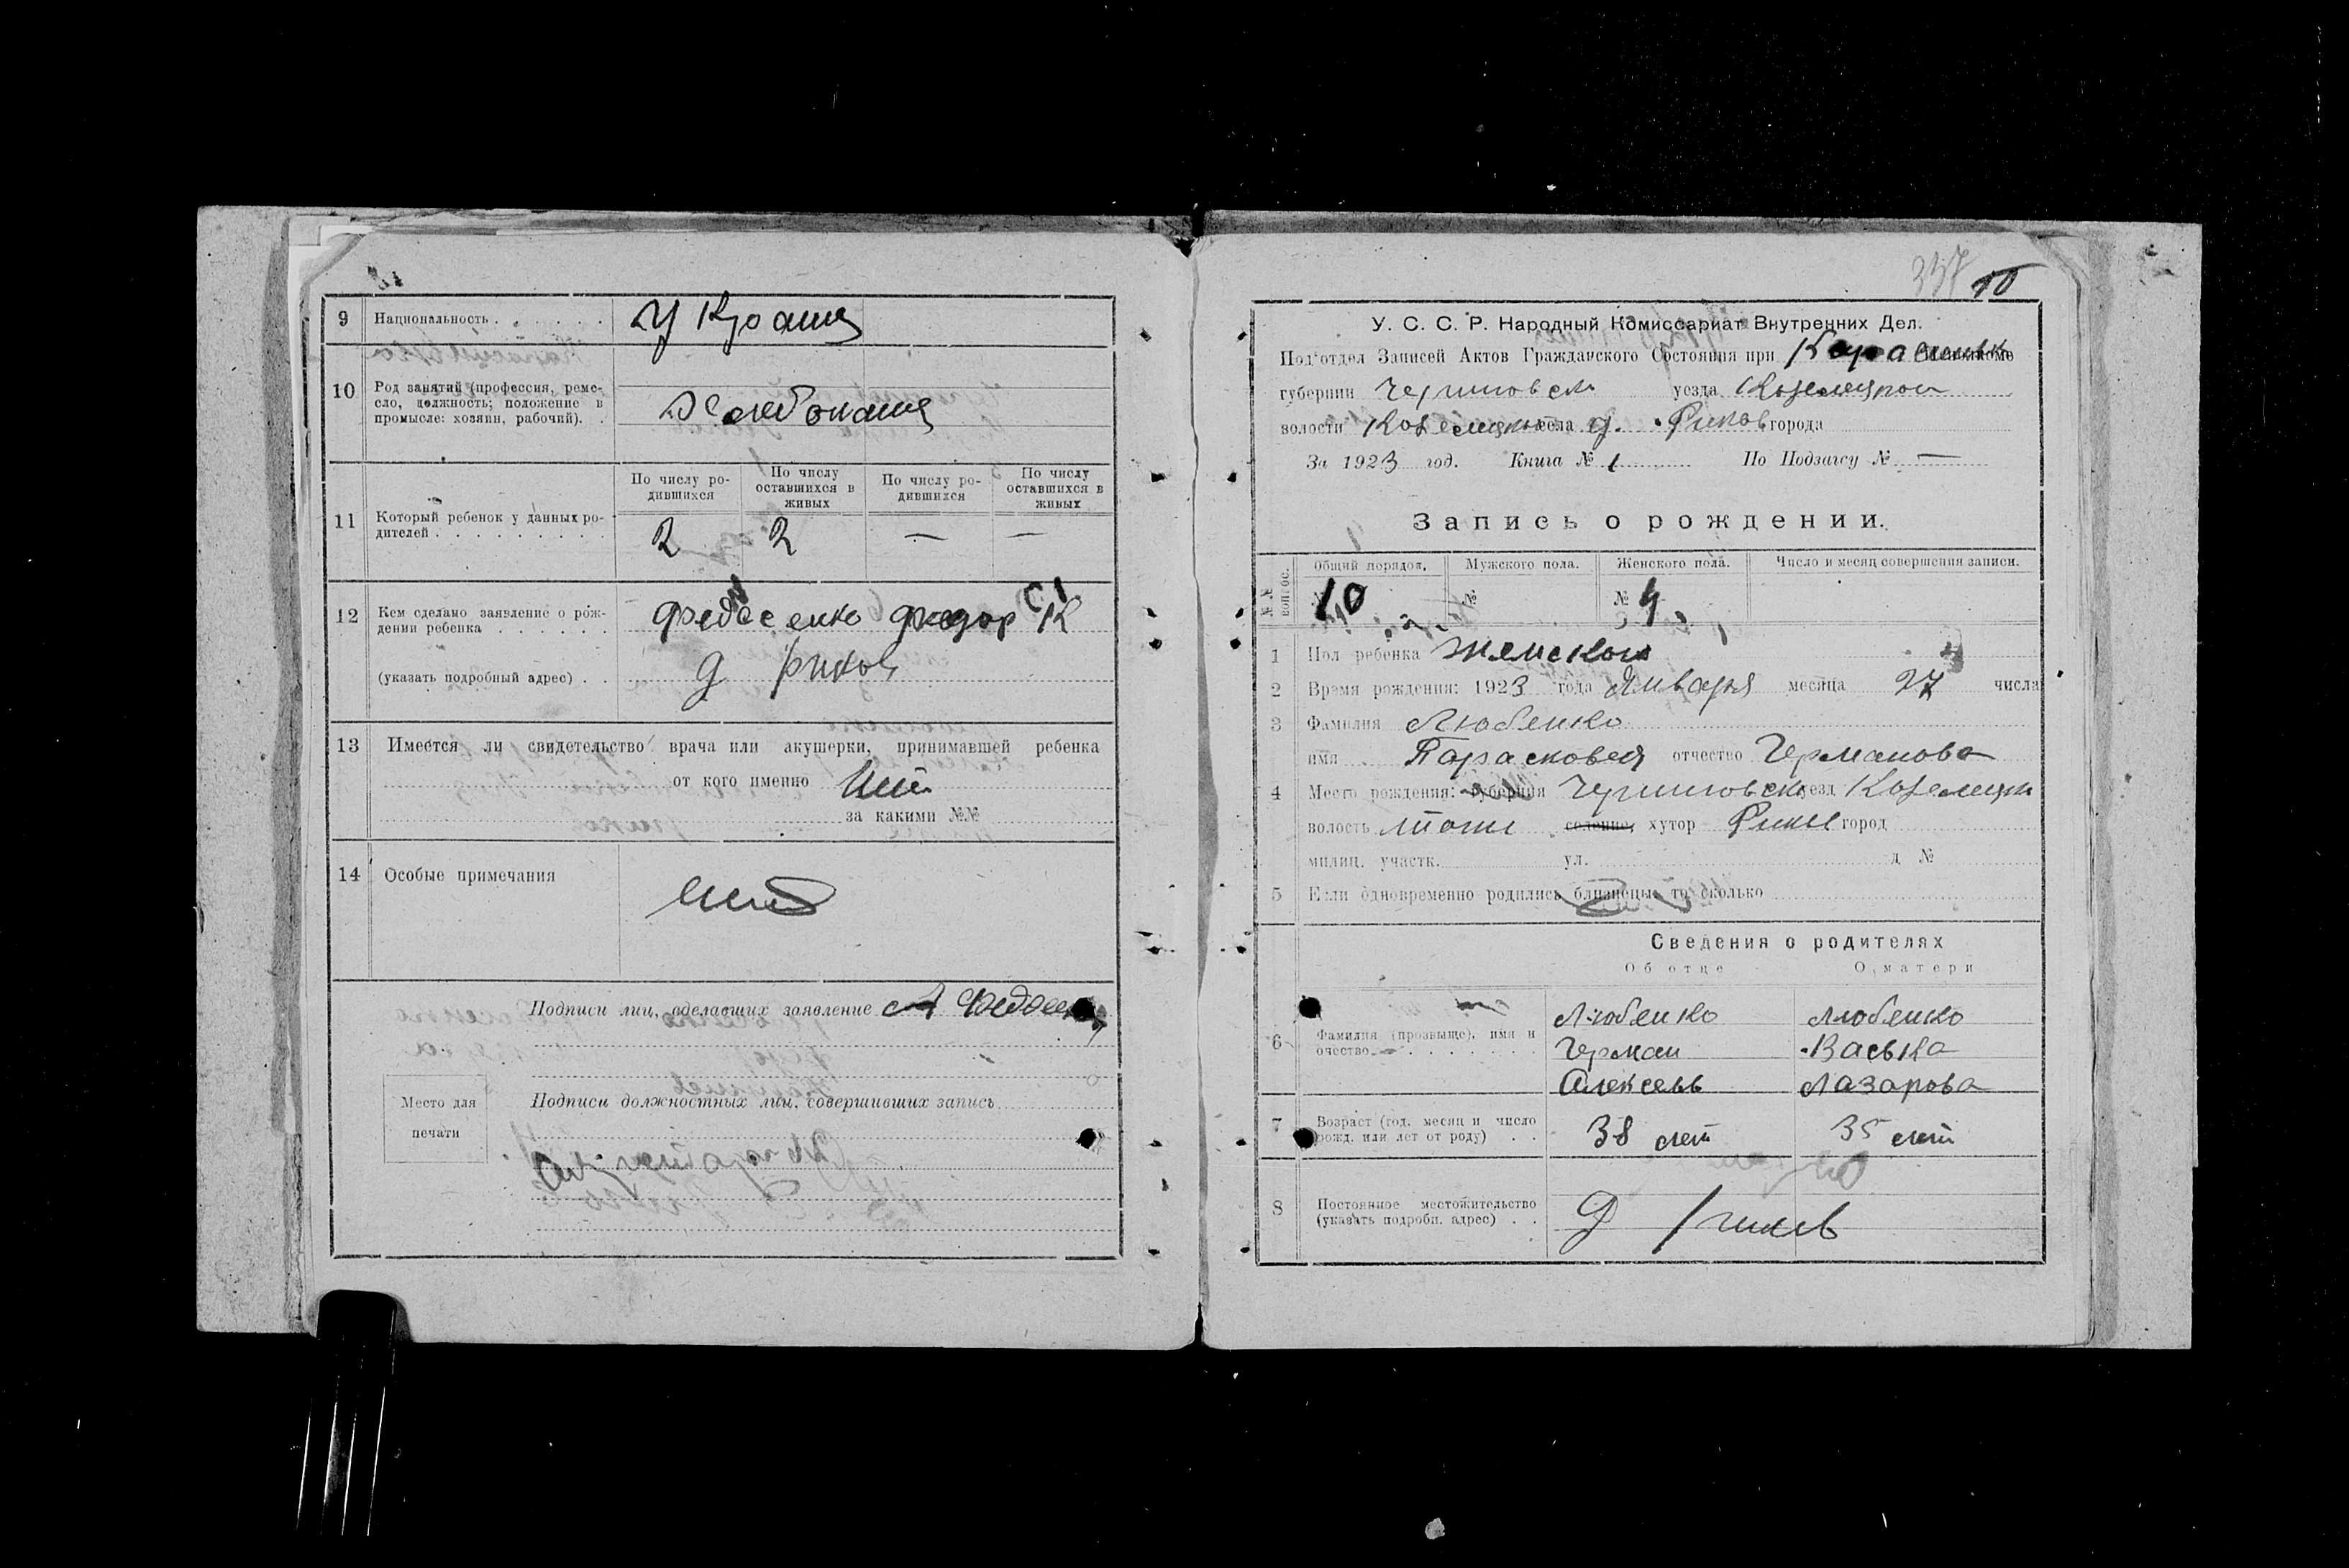 9 Национальность
10 Род занятий (профессия, реме-
сло, должность; положение в
промысле: хозяин, рабочий).
По числу ро-
дившихся
По числу
оставшихся в
живых
По числу ро-
дившихся
По числу
оставшихся в
живых
11 Который ребенок у данных ро-
дителей
2 2 — —
12 Кем сделано заявление о рож-
дении ребенка
(указать подробный адрес) д Риков
13 Имеется ли свидетельство врача или акушерки, принимавшей ребенка
от кого именно Нет
за какими №№
14 Особые примечания Нет
Подписи лиц, сделавших заявление
Место для
печати
Подписи должностных лиц, совершивших запись
337 10
У. С. С. Р. Народный Комиссариат Внутренних Дел.
Под'отдел Записей Актов Гражданского Состояния при
губернии Черниговск уезда
волости села д. Риков города
За 1923 год. Книга № 1 По Подзагсу № —
Запись о рождении.
№№ вопрос.
Общий порядок. Мужского пола. Женского пола. Число и месяц совершения записи.
№ 10 № № 4
1 Пол ребенка женской
2 Время рождения: 1923 года Января месяца 27 числа
3 Фамилия Любенко
имя Парасковея отчество Германова
4 Место рождения: губерния Черниговск уезд Козелецк
волость тоже селение, хутор город
милиц. участк. ул. д №
5 Если одновременно родились близнецы, то сколько
Сведения о родителях
Об отце О матери
6 Фамилия (прозвище), имя и
очество
Любенко Любенко
Герман Васька
Алексевъ Лазарова
7 Возраст (год, месяц и число
рожд. или лет от роду)
38 лет 35 лет
8 Постоянное местожительство
(указать подробн. адрес)
Д Риков